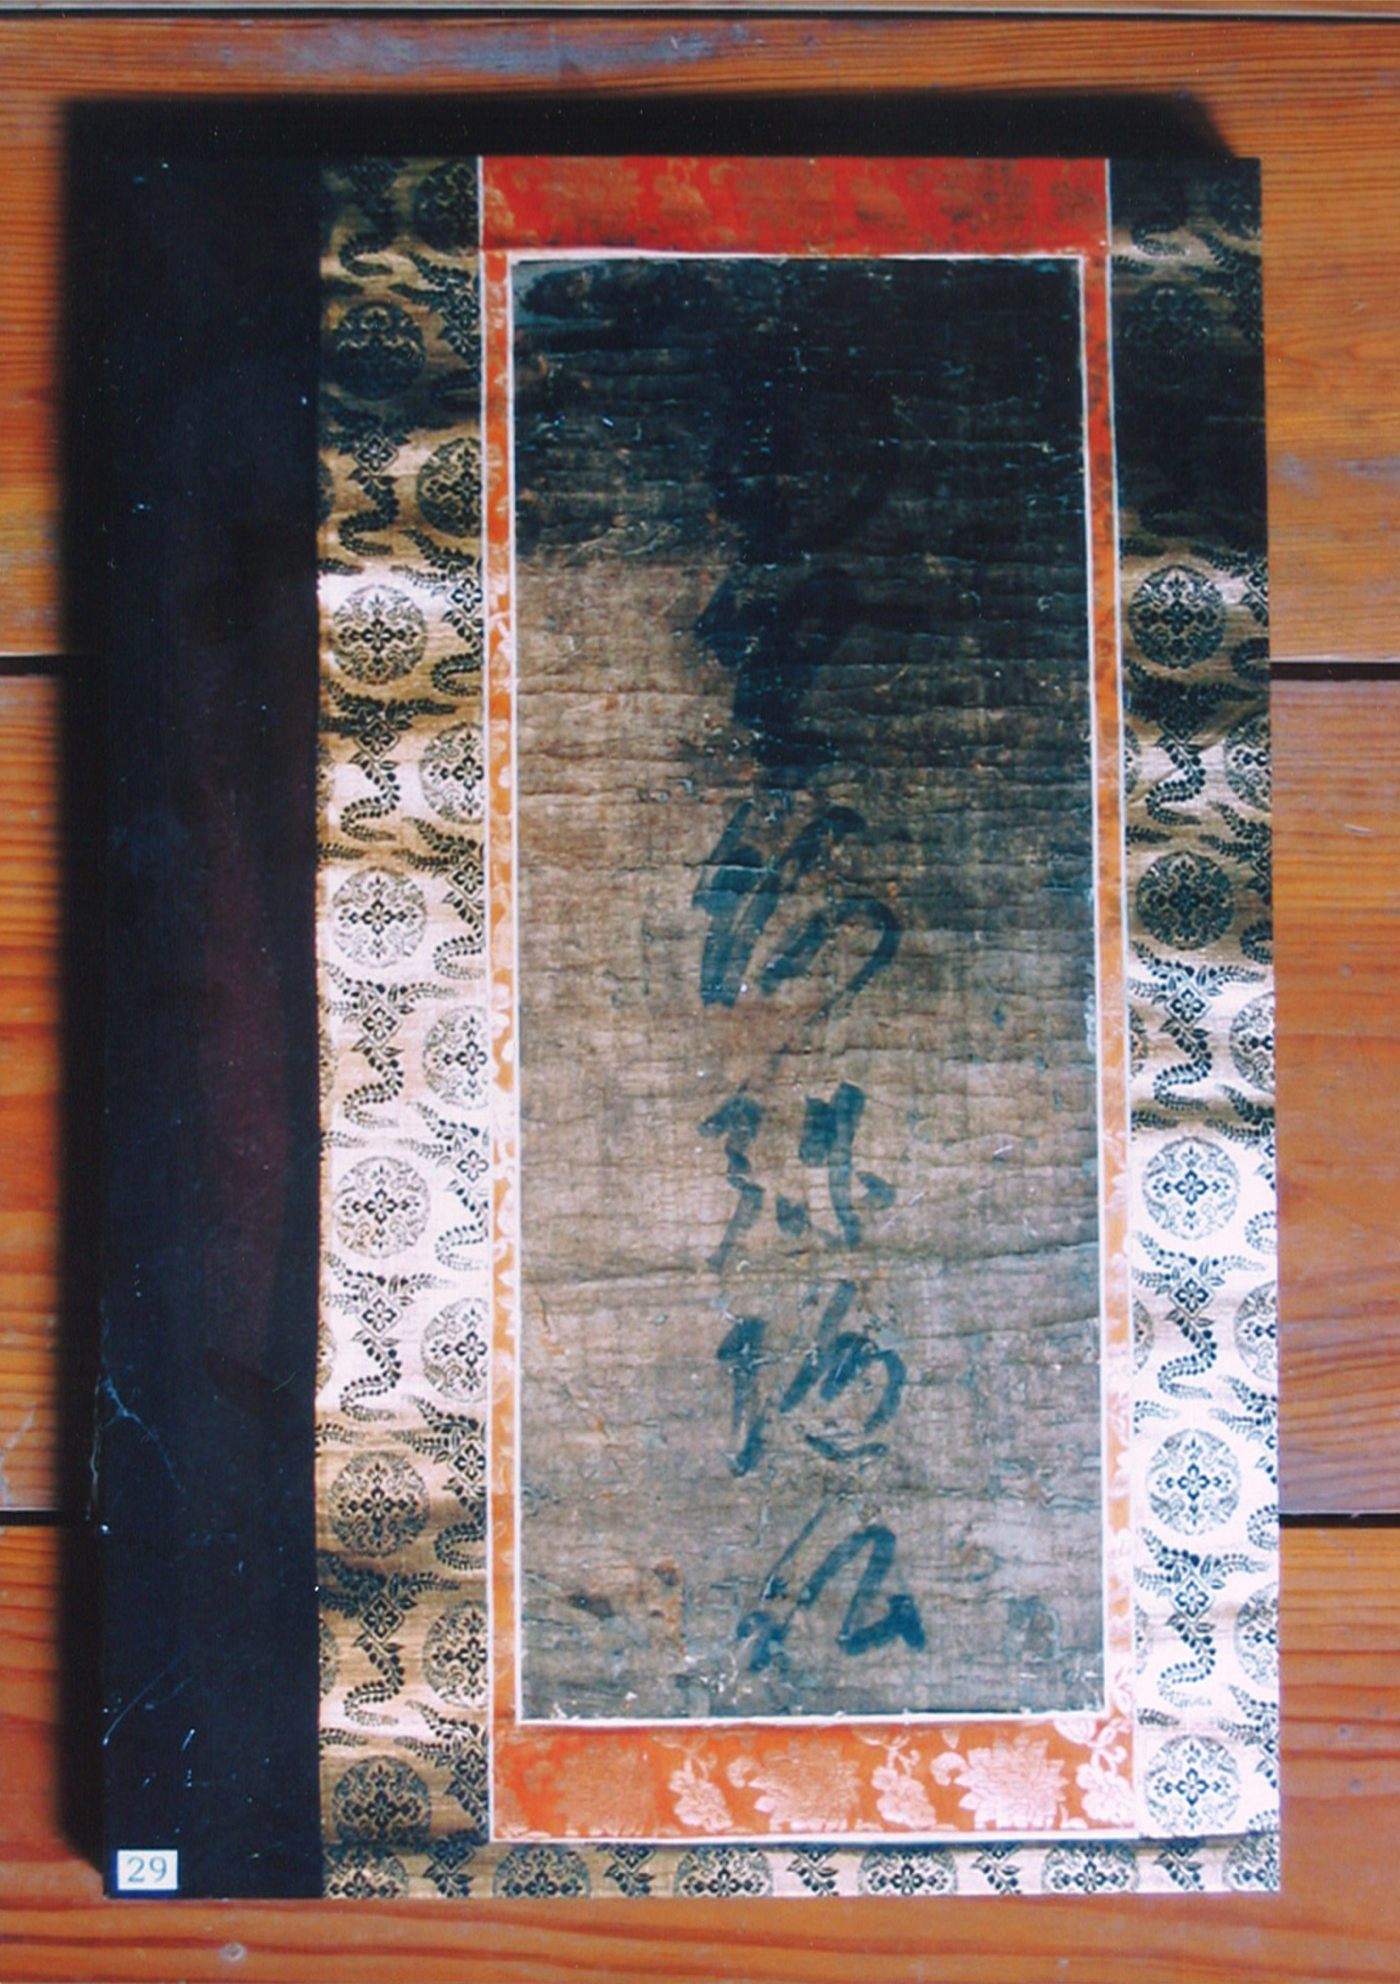 南無阿弥陀仏
29